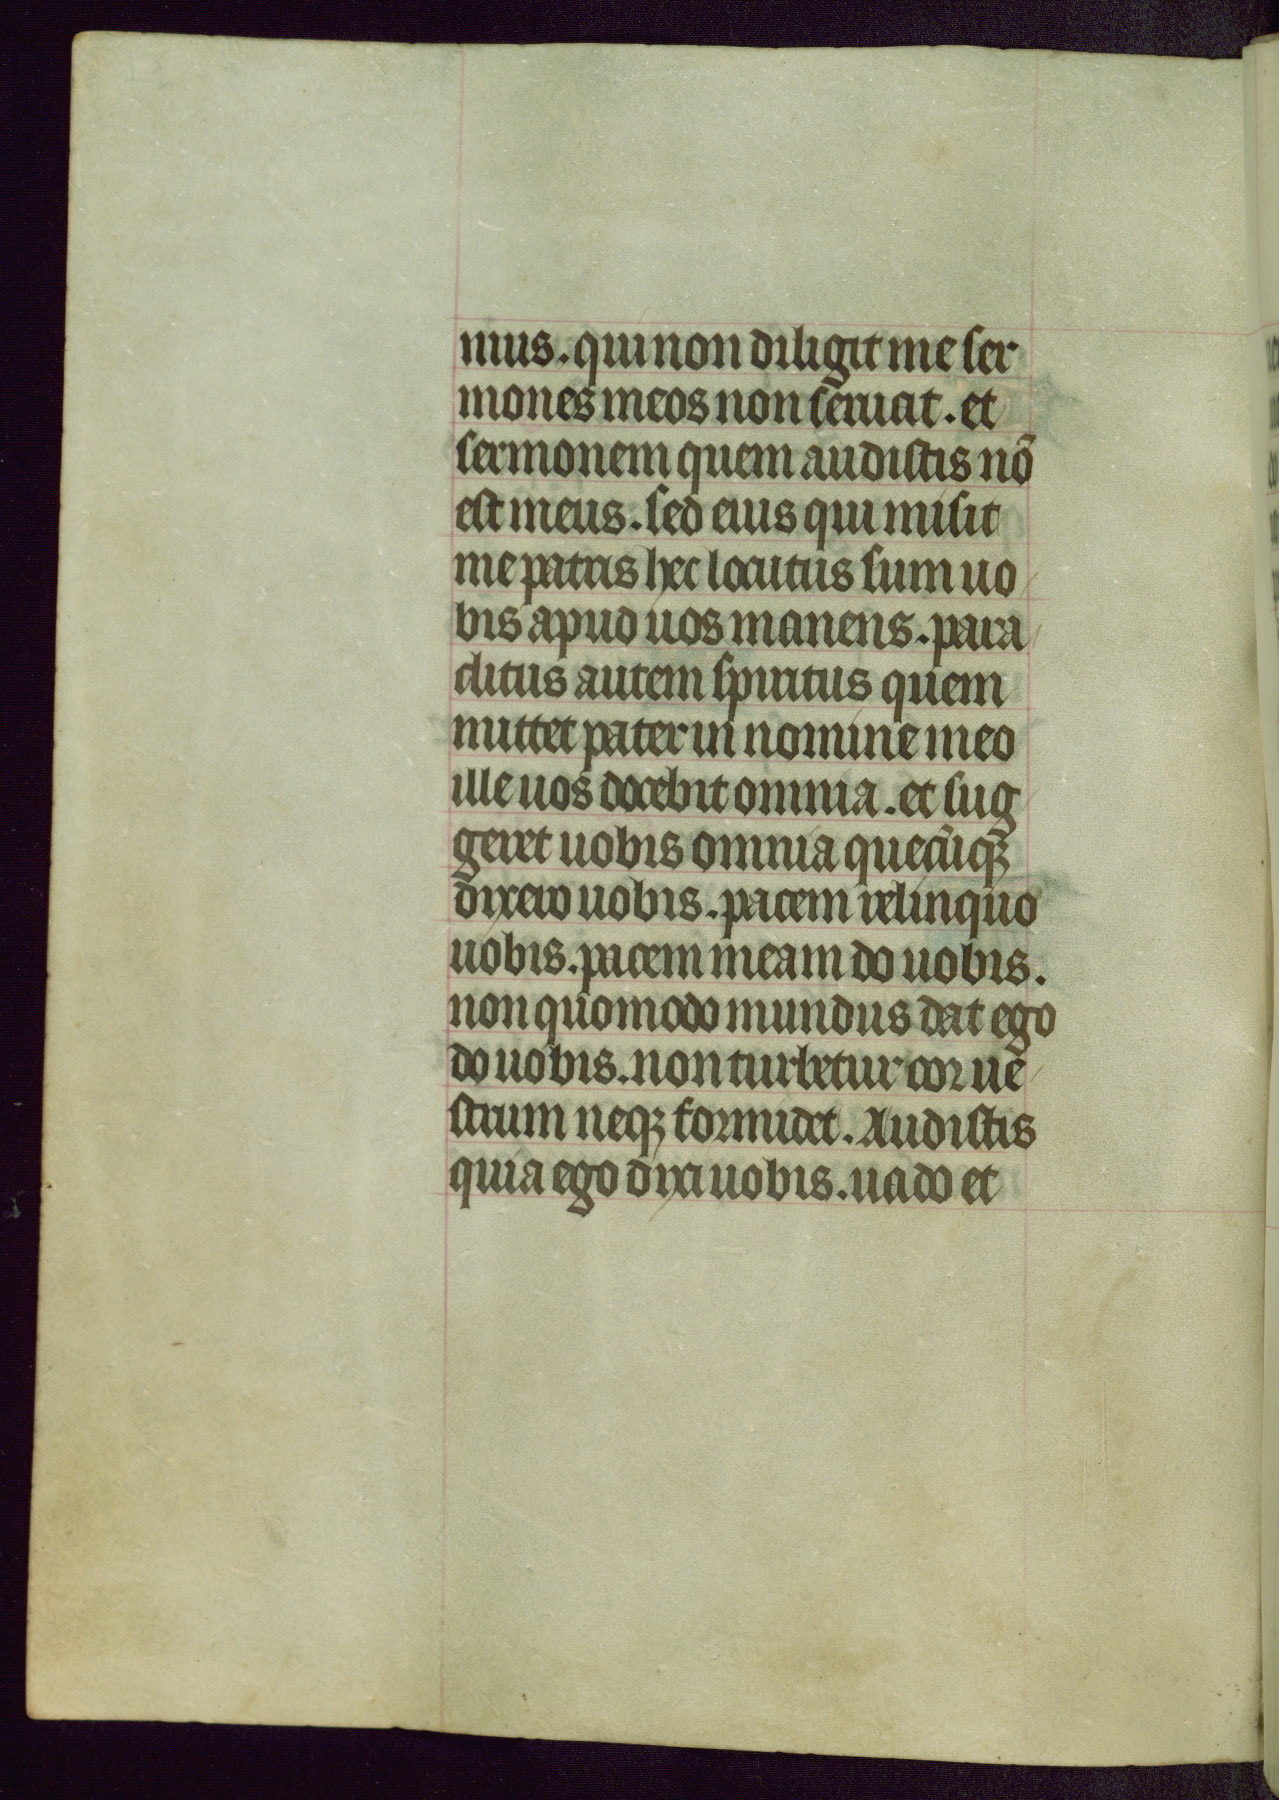 mus. qui non diligit me ser
mones meos non seruat. et
sermonem quem audistis nō
est meus. sed eius qui misit
me patris hec locutus sum uo
bis apud uos manens. para
clitus autem spiritus quem
mittet pater in nomine meo
ille uos docebit omnia. et sug
geret uobis omnia quecūqꝫ
dixero uobis. pacem relinquo
uobis. pacem meam do uobis.
non quomodo mundus dat ego
do uobis. non turbetur cor ue
strum neqꝫ formidet. Audistis
quia ego dixi uobis. uado et